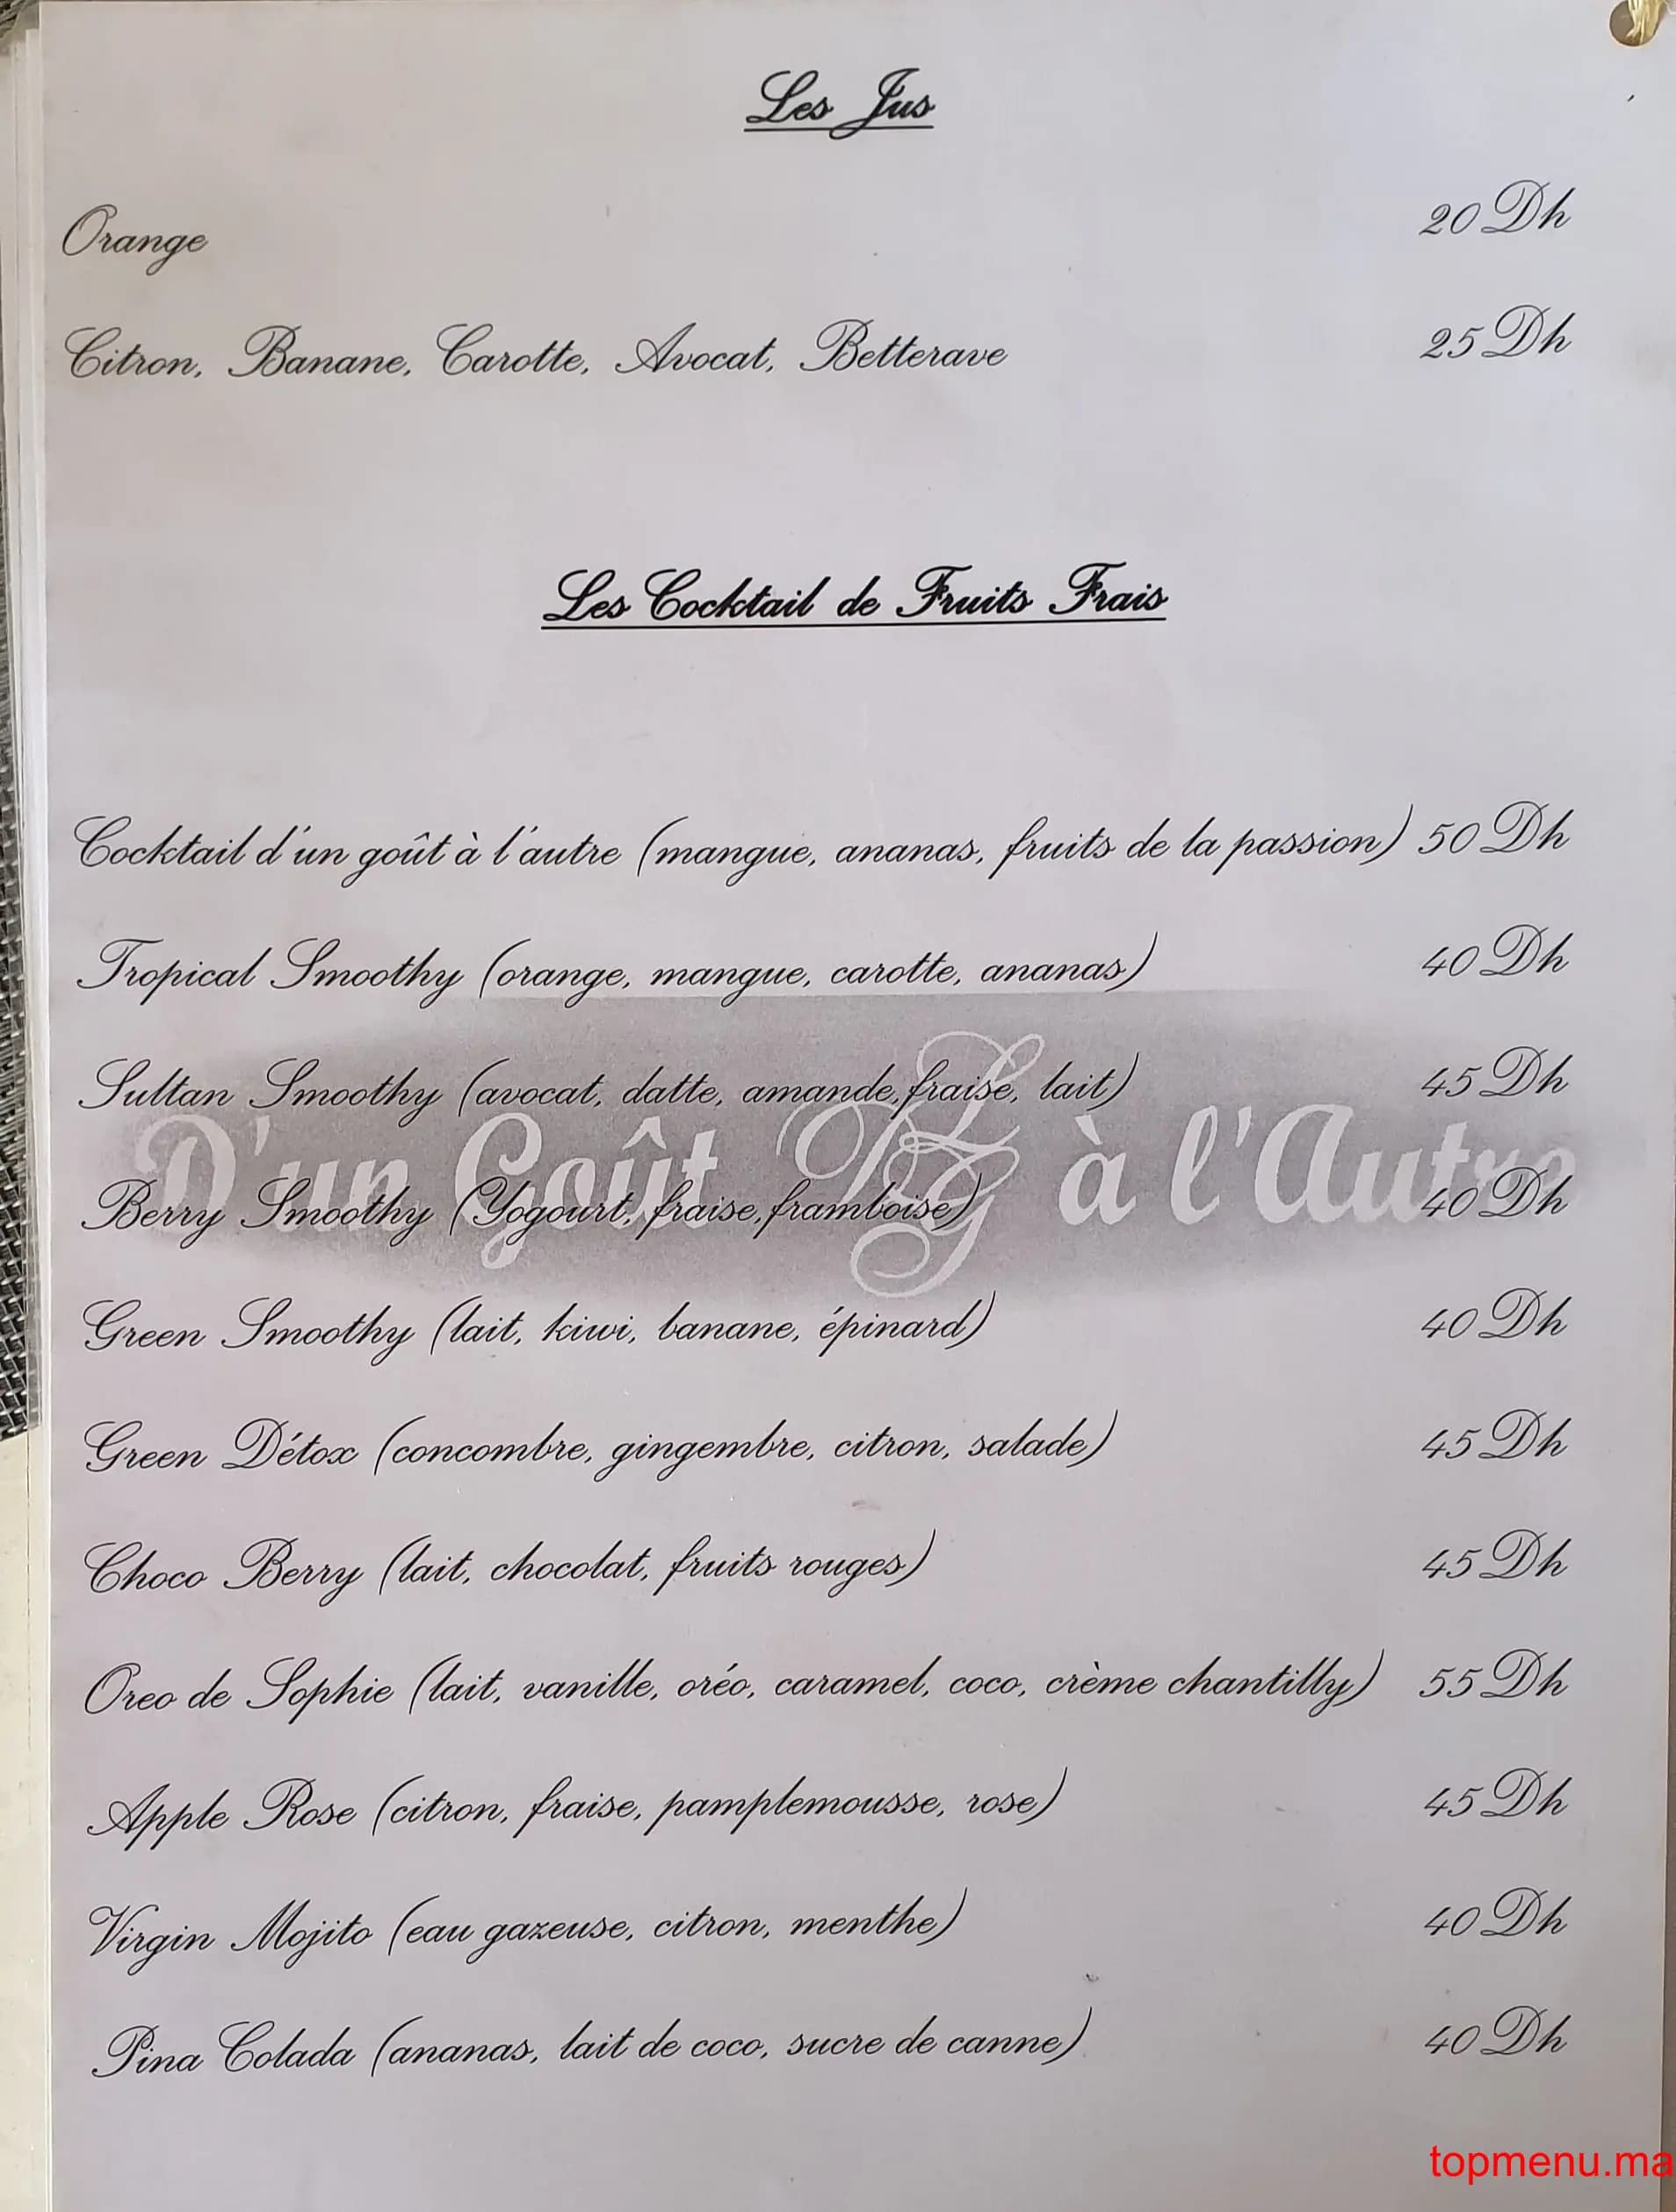 Les Jus
Orange 20 Dh
Citron, Banane, Carotte, Avocat, Betterave 25 Dh
Les Cocktail de Fruits Frais
Cocktail d'un goût à l'autre (mangue, ananas, fruits de la passion) 50 Dh
Tropical Smoothy (orange, mangue, carotte, ananas) 40 Dh
Sultan Smoothy (avocat, datte, amande, fraise, lait) 45 Dh
D'un Goût à l'Autre
Berry Smoothy (Yogourt, fraise, framboise) 40 Dh
Green Smoothy (lait, kiwi, banane, épinard) 40 Dh
Green Détox (concombre, gingembre, citron, salade) 45 Dh
Choco Berry (lait, chocolat, fruits rouges) 45 Dh
Oreo de Sophie (lait, vanille, oréo, caramel, coco, crème chantilly) 55 Dh
Apple Rose (citron, fraise, pamplemousse, rose) 45 Dh
Virgin Mojito (eau gazeuse, citron, menthe) 40 Dh
Pina Colada (ananas, lait de coco, sucre de canne) 40 Dh
topmenu.ma